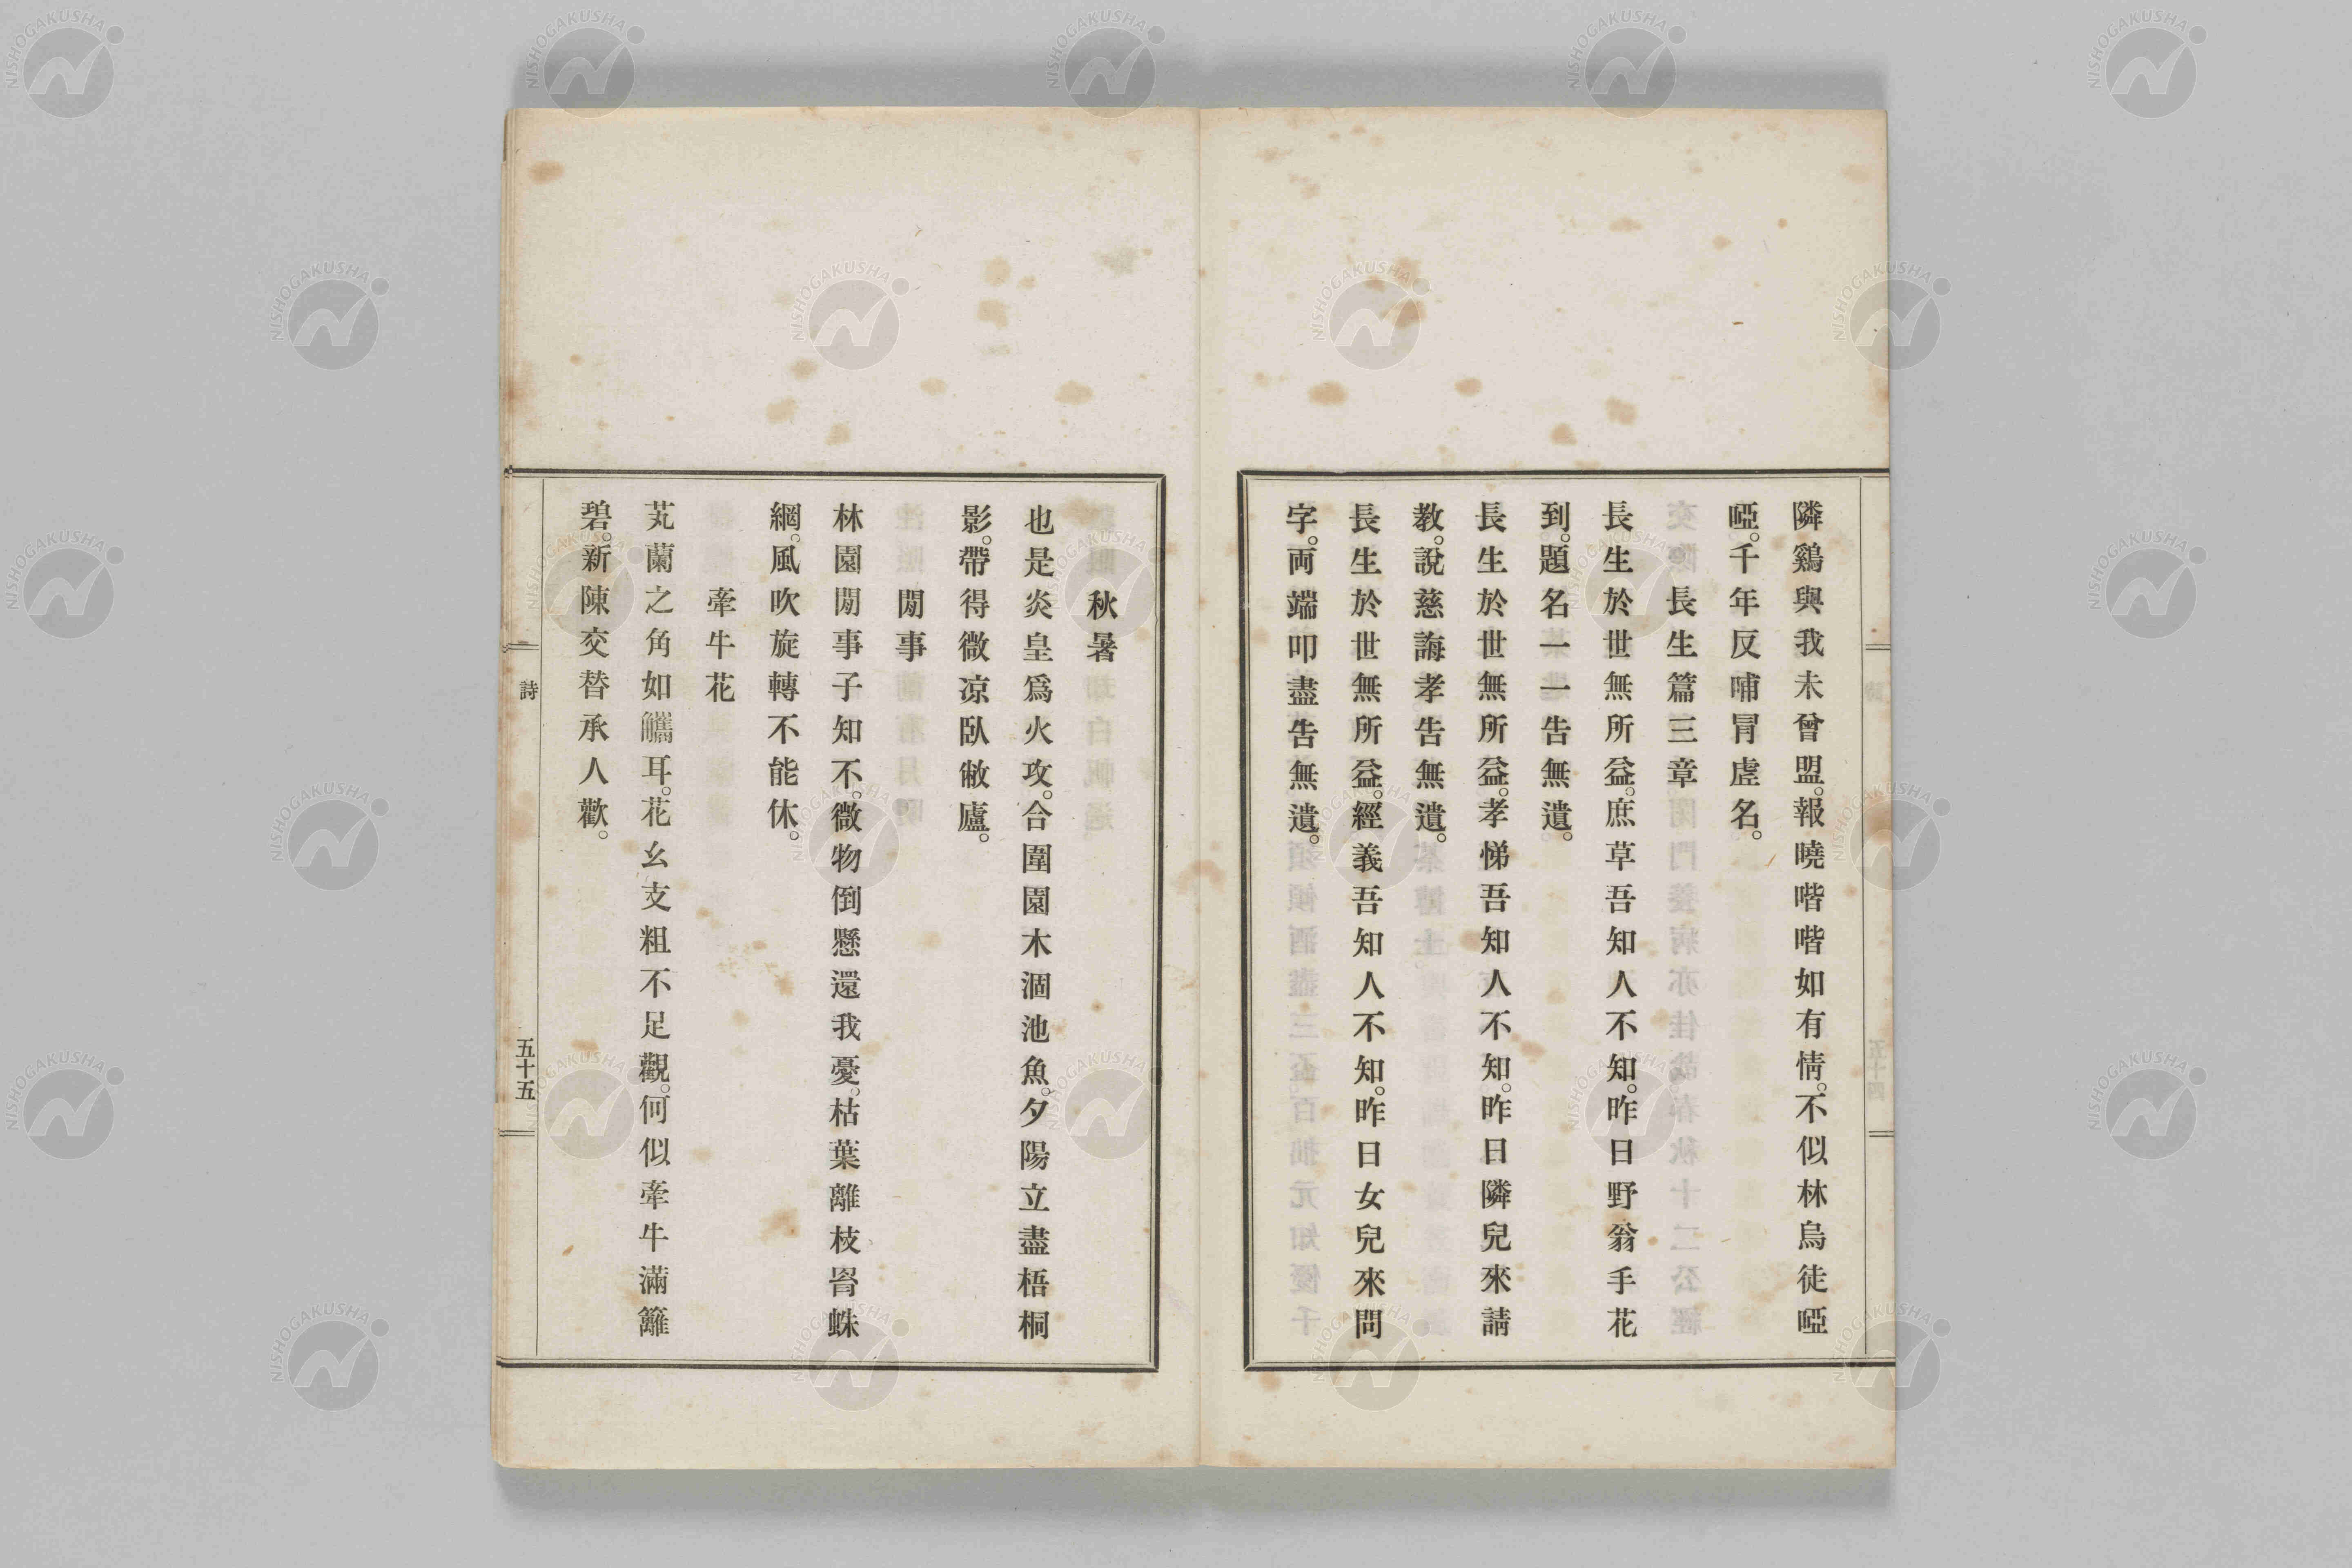 隣鷄與我未曾盟。報曉喈喈如有情。不似林烏徒啞
啞。千年反哺冒虛名。
長生篇三章
長生於世無所益。庶草吾知人不知。昨日野翁手花
到。題名一一告無遺。
長生於世無所益。孝悌吾知人不知。昨日隣兒來請
教。說慈誨孝告無遺。
長生於世無所益。經義吾知人不知。昨日女兒來問
字。両端叩盡告無遺。
秋暑
也是炎皇爲火攻。合圍園木涸池魚。夕陽立盡梧桐
影。帶得微凉臥敝廬。
閒事
林園閒事子知不。微物倒懸還我憂。枯葉離枝罥蛛
網。風吹旋轉不能休。
牽牛花
芄蘭之角如觿耳。花幺支粗不足觀。何似牽牛滿籬
碧。新陳交替承人歡。
詩
五十五
NISHOGAKUSHA